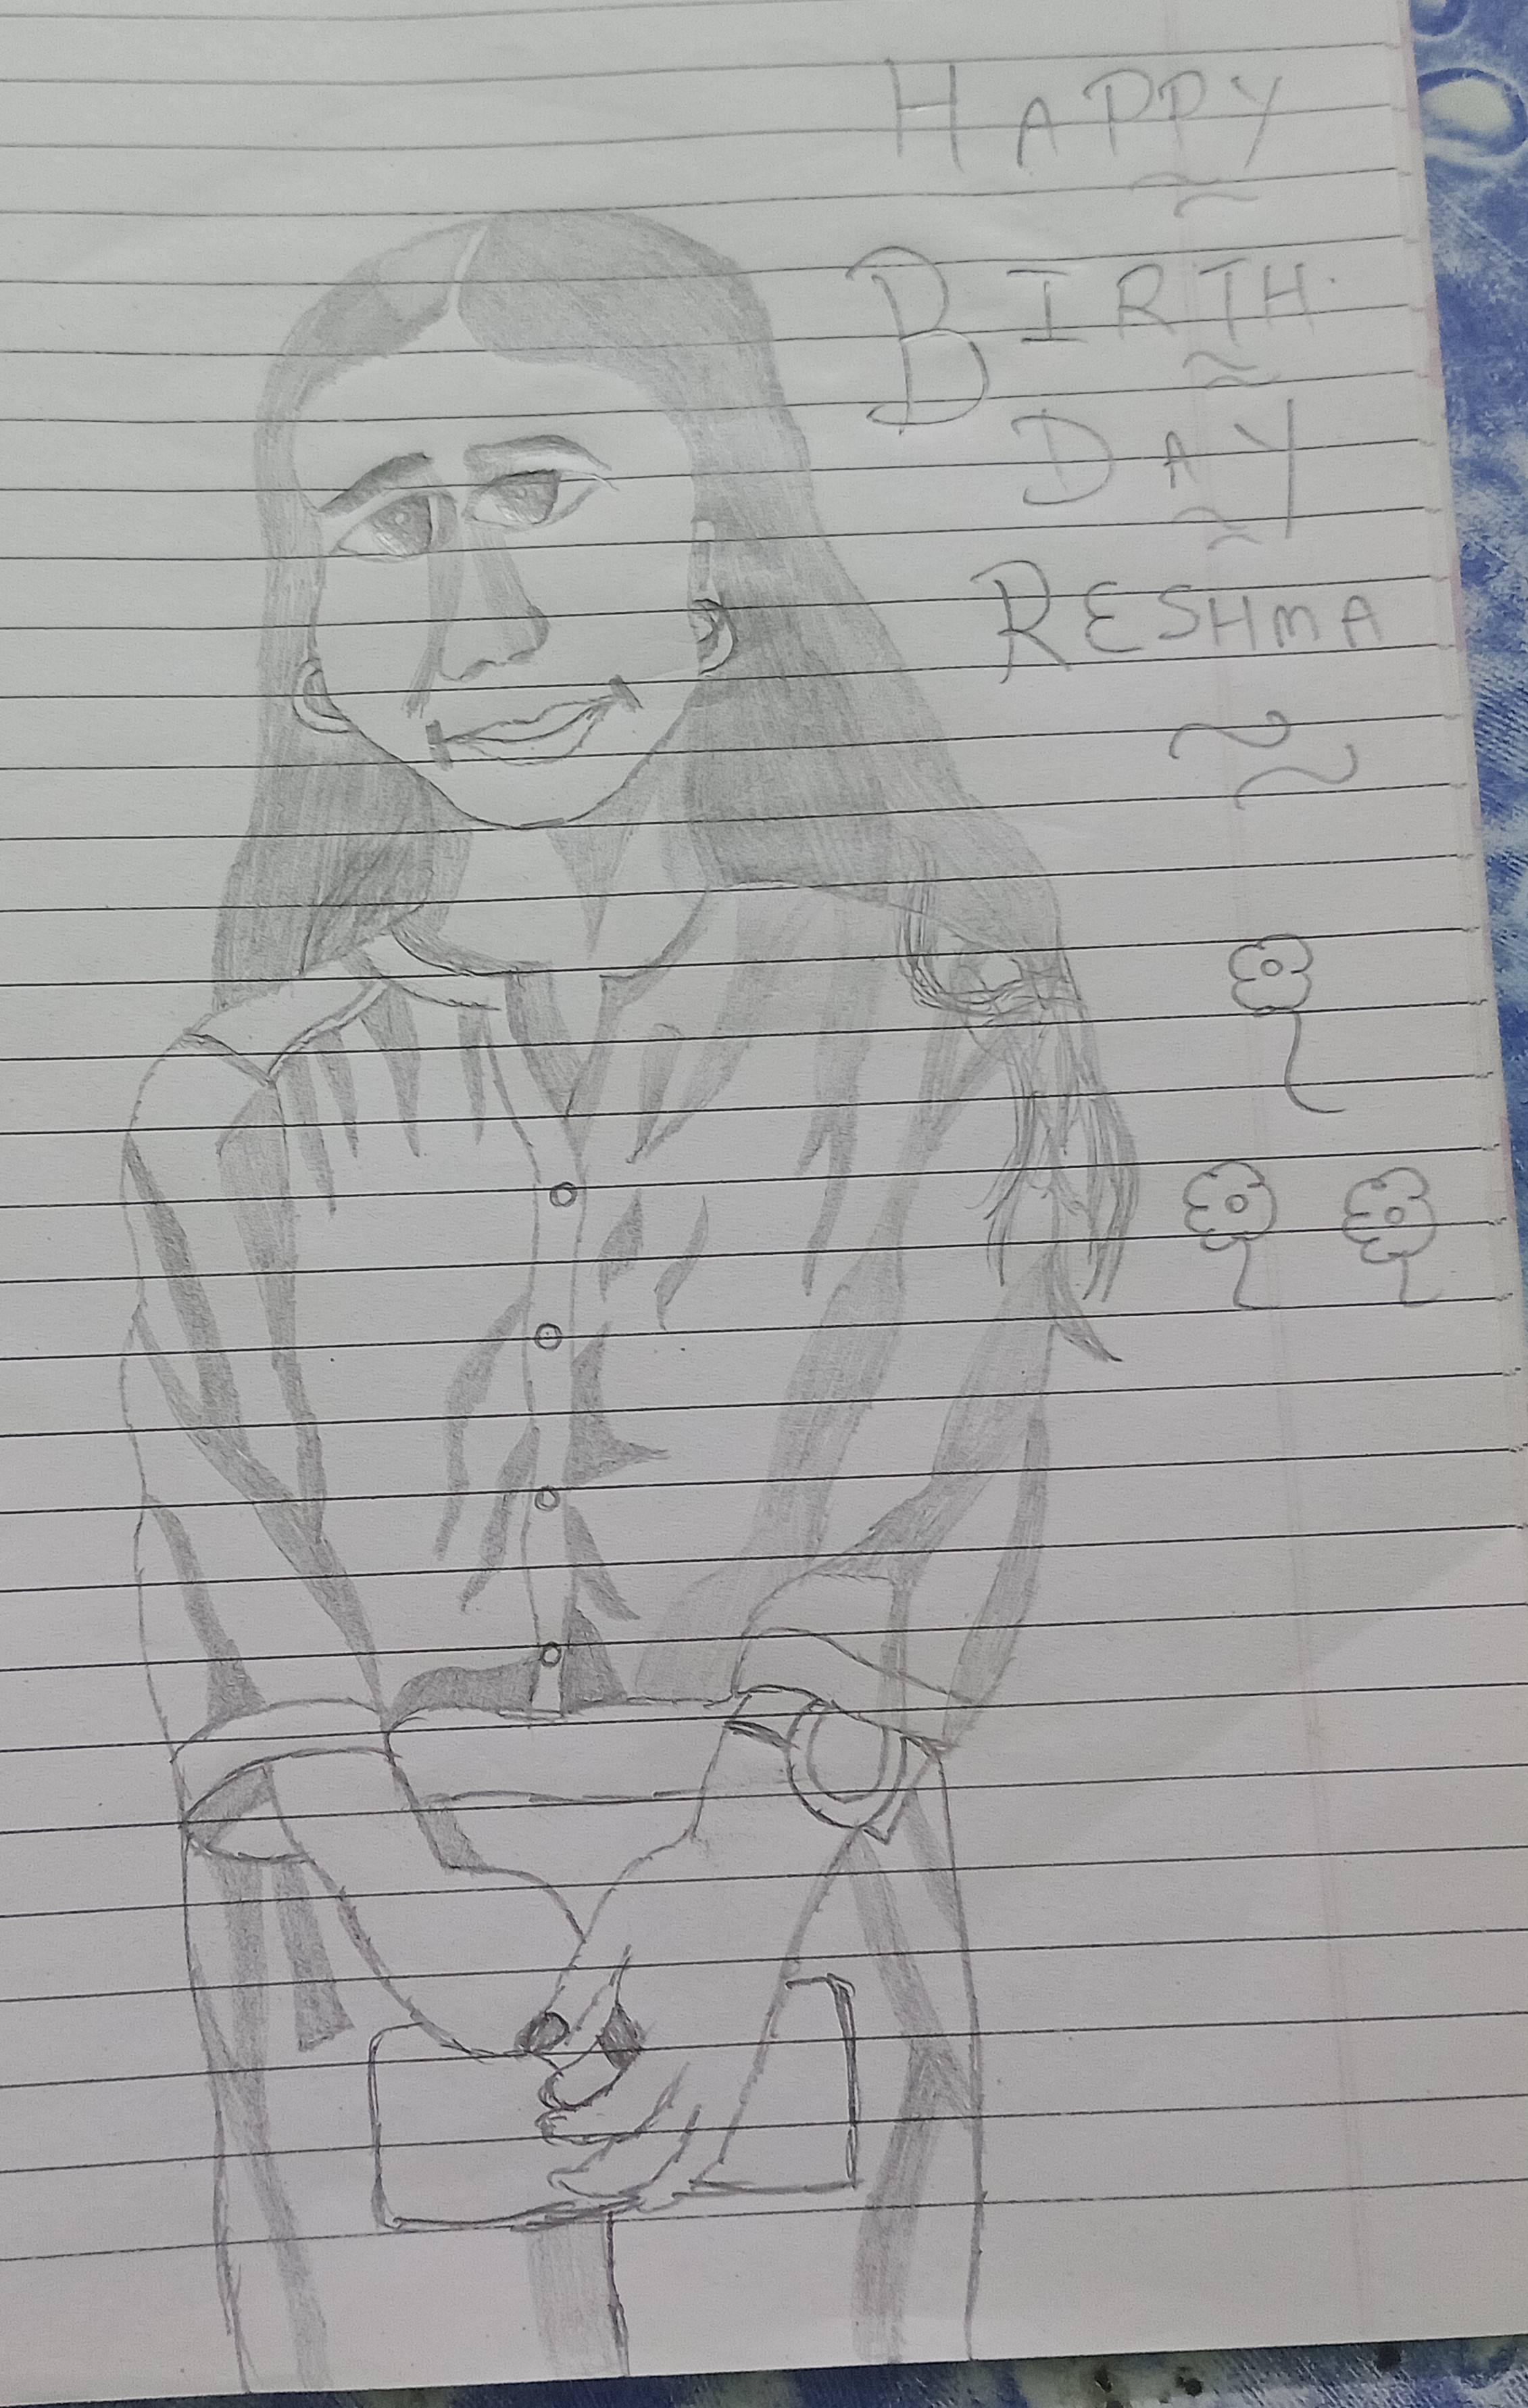 HAPPY
BIRTH
DAY
RESHMA